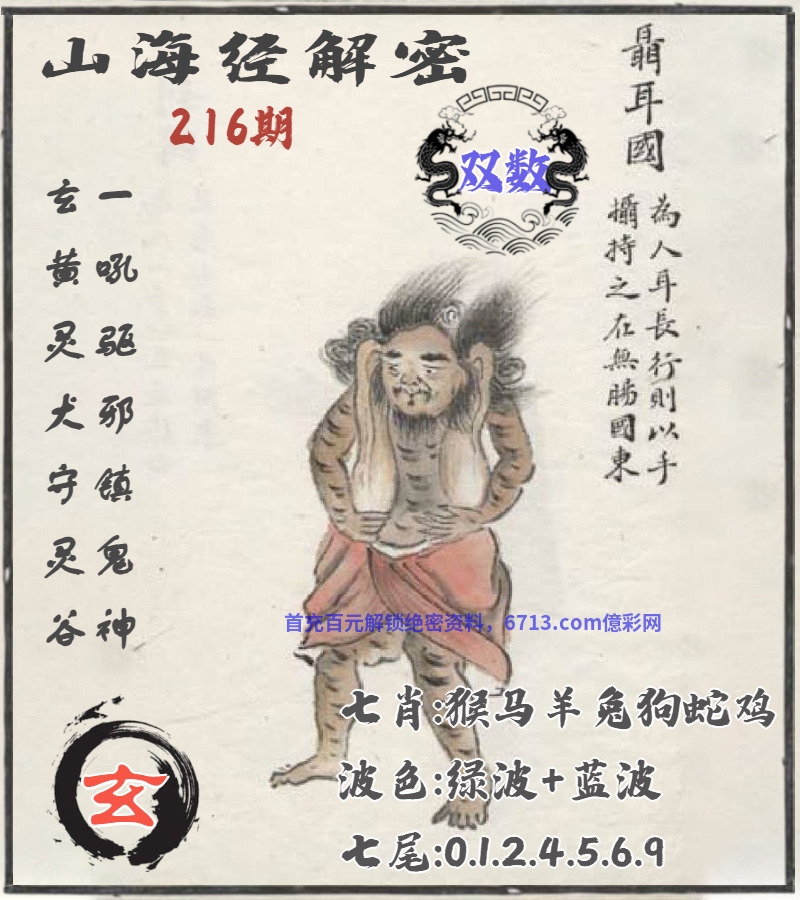 山海经解密
216期
聶耳國
為人耳長行則以手
攝持之在無腸國東
双数
一吼驱邪镇鬼神
玄黄灵犬守灵谷
首充百元解锁绝密资料，6713.com億彩网
七肖:猴马羊兔狗蛇鸡
波色:绿波+蓝波
七尾:0.1.2.4.5.6.9
玄